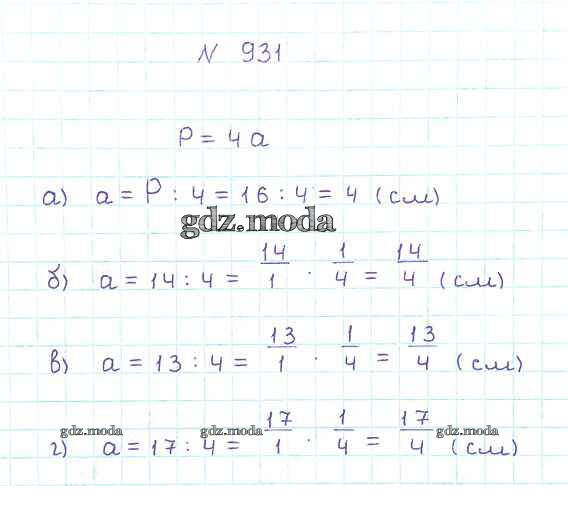 N 931
P = 4a
а) a = P : 4 = 16 : 4 = 4 (см)
gdz.moda
б) a = 14 : 4 = 14/1 · 1/4 = 14/4 (см)
в) a = 13 : 4 = 13/1 · 1/4 = 13/4 (см)
gdz.moda gdz.moda gdz.moda
г) a = 17 : 4 = 17/1 · 1/4 = 17/4 (см)